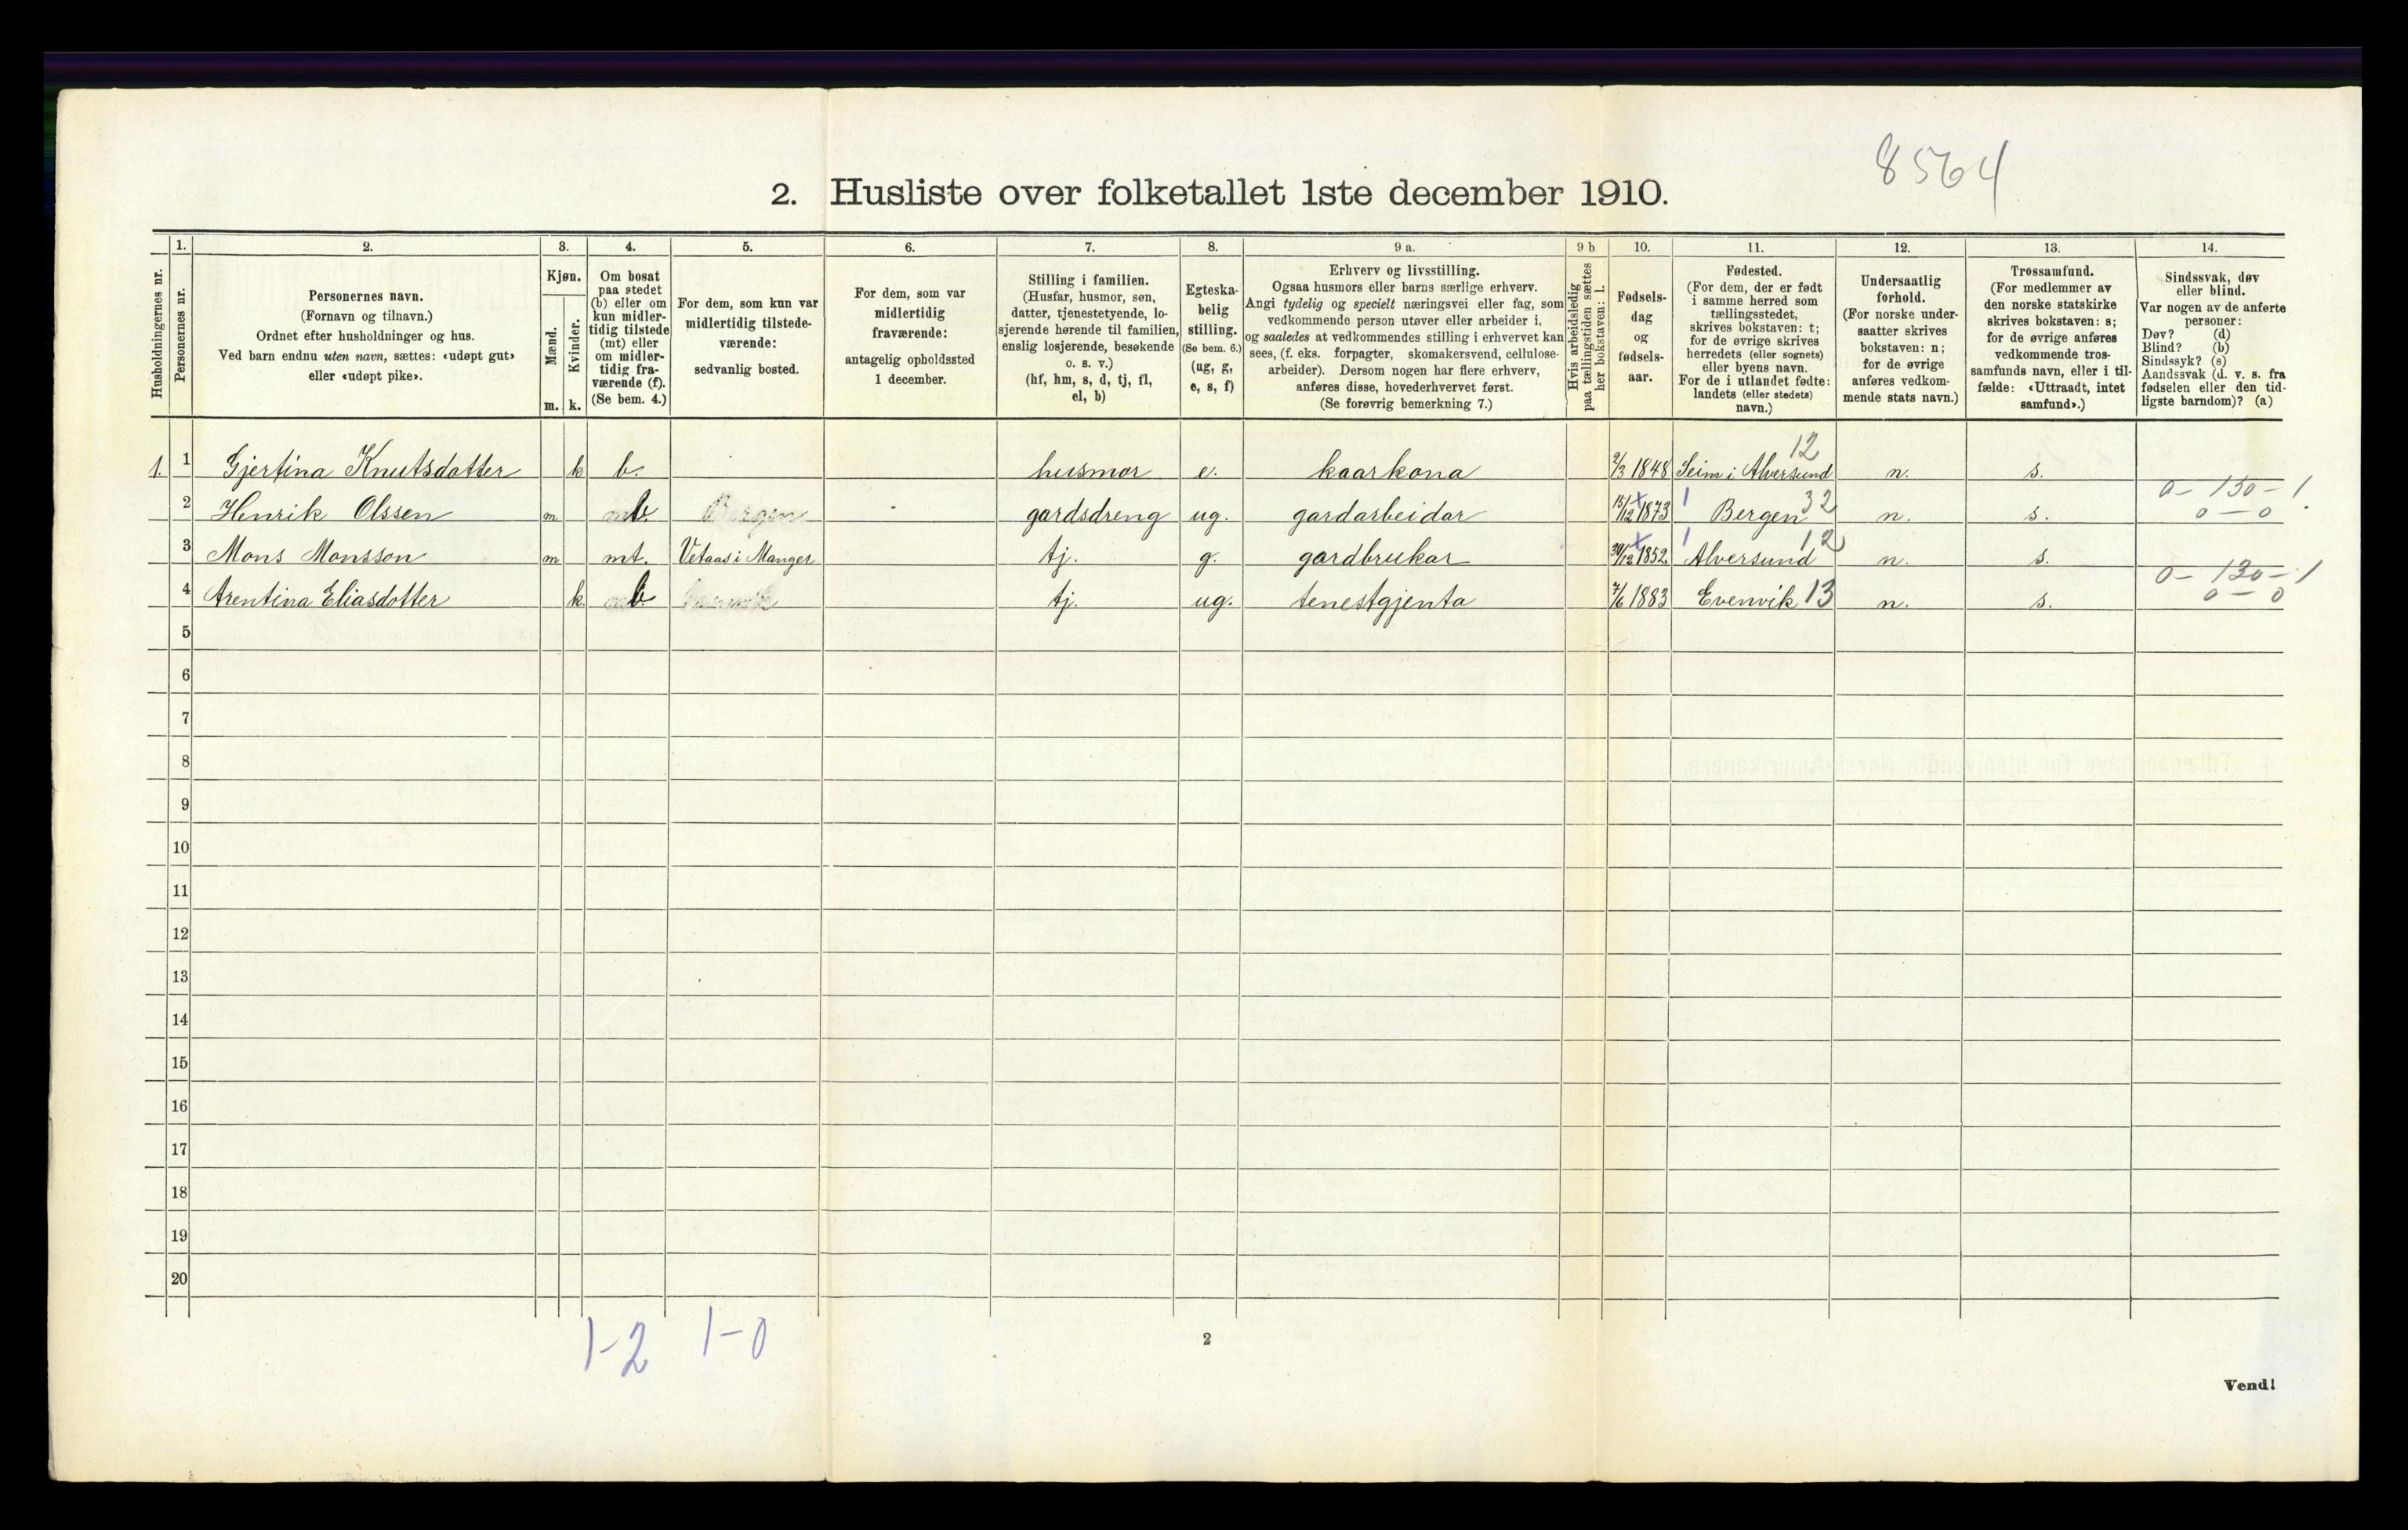 8564
2. Husliste over folketallet 1ste december 1910.
Husholdningernes nr.
1.
Personernes nr.
2.
Personernes navn.
(Fornavn og tilnavn.)
Ordnet efter husholdninger og hus.
Ved barn endnu uten navn, sættes: «udøpt gut»
eller «udøpt pike».
3.
Kjøn.
Mænd.
Kvinder.
m. k.
4.
Om bosat
paa stedet
(b) eller om
kun midler-
tidig tilstede
(mt) eller
om midler-
tidig fra-
værende (f).
(Se bem. 4.)
5.
For dem, som kun var
midlertidig tilstede-
værende:
sedvanlig bosted.
6.
For dem, som var
midlertidig
fraværende:
antagelig opholdssted
1 december.
7.
Stilling i familien.
(Husfar, husmor, søn,
datter, tjenestetyende, lo-
sjerende hørende til familien,
enslig losjerende, besøkende
o. s. v.)
(hf, hm, s, d, tj, fl,
el, b)
8.
Egteska-
belig
stilling.
(Se bem. 6.)
(ug, g,
e, s, f)
9 a.
Erhverv og livsstilling.
Ogsaa husmors eller barns særlige erhverv.
Angi tydelig og specielt næringsvei eller fag, som
vedkommende person utøver eller arbeider i,
og saaledes at vedkommendes stilling i erhvervet kan
sees, (f. eks. forpagter, skomakersvend, cellulose-
arbeider). Dersom nogen har flere erhverv,
anføres disse, hovederhvervet først.
(Se forøvrig bemerkning 7.)
9 b
Hvis arbeidsledig
paa tællingstiden sættes
her bokstaven: l.
10.
Fødsels-
dag
og
fødsels-
aar.
11.
Fødested.
(For dem, der er født
i samme herred som
tællingsstedet,
skrives bokstaven: t;
for de øvrige skrives
herredets (eller sognets)
eller byens navn.
For de i utlandet fødte:
landets (eller stedets)
navn.)
12.
Undersaatlig
forhold.
(For norske under-
saatter skrives
bokstaven: n;
for de øvrige
anføres vedkom-
mende stats navn.)
13.
Trossamfund.
(For medlemmer av
den norske statskirke
skrives bokstaven: s;
for de øvrige anføres
vedkommende tros-
samfunds navn, eller i til-
fælde: «Uttraadt, intet
samfund».)
14.
Sindssvak, døv
eller blind.
Var nogen av de anførte
personer:
Døv? (d)
Blind? (b)
Sindssyk? (s)
Aandssvak (d. v. s. fra
fødselen eller den tid-
ligste barndom)? (a)
12
1. 1 Gjertina Knutsdotter k b. husmor e. kaarkona 2/3 1848 Seim i Alversund n. s.
0 - 130 - 1
2 Henrik Olssen m b. Bergen gardsdreng ug. gardarbeidar 15/12 1873 Bergen 32 n. s. 0 - 0
3 Mons Monsson m mt. Vetaas i Manger tj. g. gardbrukar 30/12 1852 Alversund 12 n. s.
0 - 130 - 1
4 Arentina Eliasdotter k b. tj. ug. tenestgjenta 7/6 1883 Evenvik 13 n. s. 0 - 0
5
6
7
8
9
10
11
12
13
14
15
16
17
18
19
20
1-2 1-0
2
Vend!